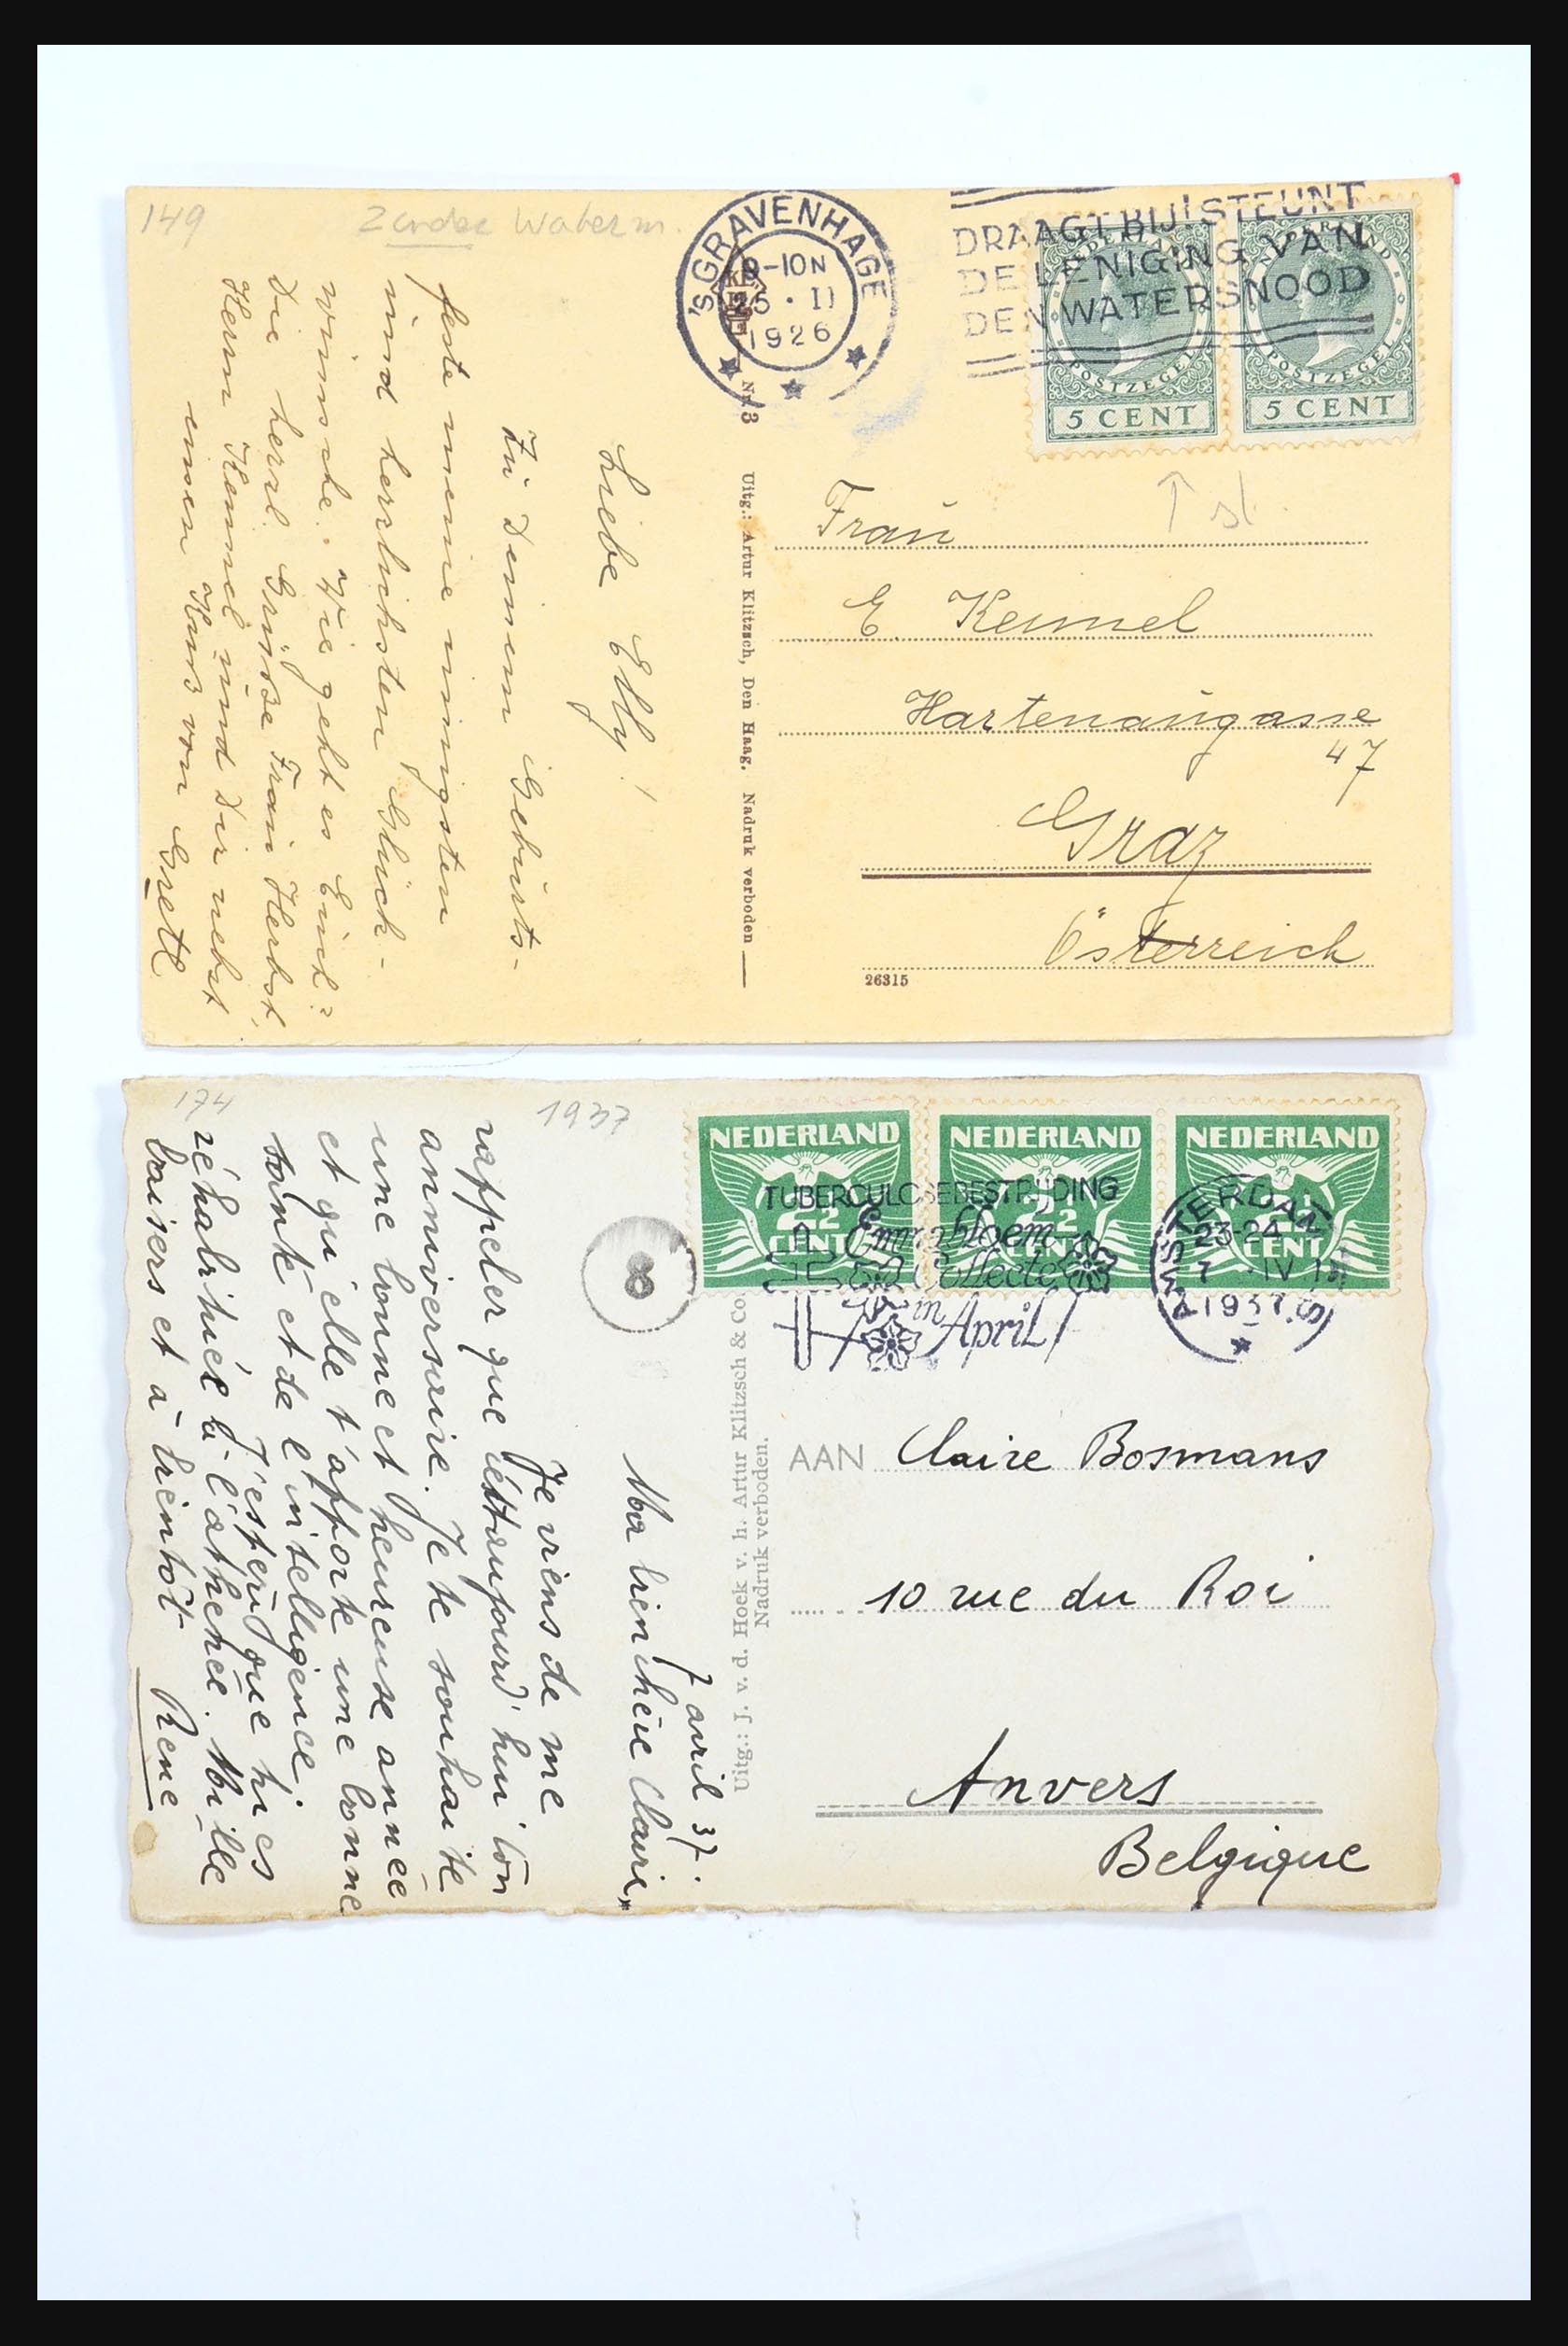 149
Zonder Waterm.
'SGRAVENHAGE
9-10N
26 · II
1926
DRAAGT BIJ! STEUNT
DE LENIGING VAN
DEN WATERSNOOD
NEDERLAND
POSTZEGEL
5 CENT
NEDERLAND
POSTZEGEL
5 CENT
Nr. 3
Uitg.: Artur Klitzsch, Den Haag. Nadruk verboden
Liebe Elly!
Zu Deinem Geburts-
feste meine innigsten
und herzlichsten Glück-
wünsche. Wie geht es Euch?
Die herzl. Grüsse Frau Herbst,
Herrn Kemmel und Dir nebst
einen Kuß von Gretl
Frau
E. Kemmel
Hartenaugasse
47
Graz
Österreich
26315
174
1937
NEDERLAND
2½
CENT
NEDERLAND
2½
CENT
NEDERLAND
2½
CENT
TUBERCULOSEBESTRIJDING
Emmabloem
Collecte
in April
AMSTERDAM C.S.
23-24
7 · IV
1937
8
Uitg.: J. v. d. Hoek v. h. Artur Klitzsch & Co.
Nadruk verboden.
7 avril 37.
Ma bien chère Claire,
Je viens de me
rappeler que c'est aujourd'hui ton
anniversaire. Je te souhaite
une bonne et heureuse année
et qu'elle t'apporte une bonne
santé et de l'intelligence.
J'espère que tu es
réhabituée à l'athénée. Mille
baisers et à bientôt René
AAN Claire Bosmans
10 rue du Roi
Anvers
Belgique